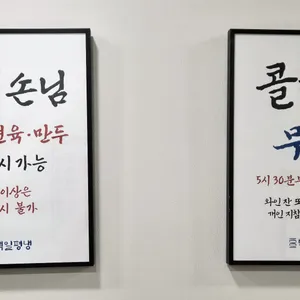 손님
육·만두
시 가능
이상은
시 불가
일평냉
콜
무
5시 30분
와인 잔 또
개인 지참